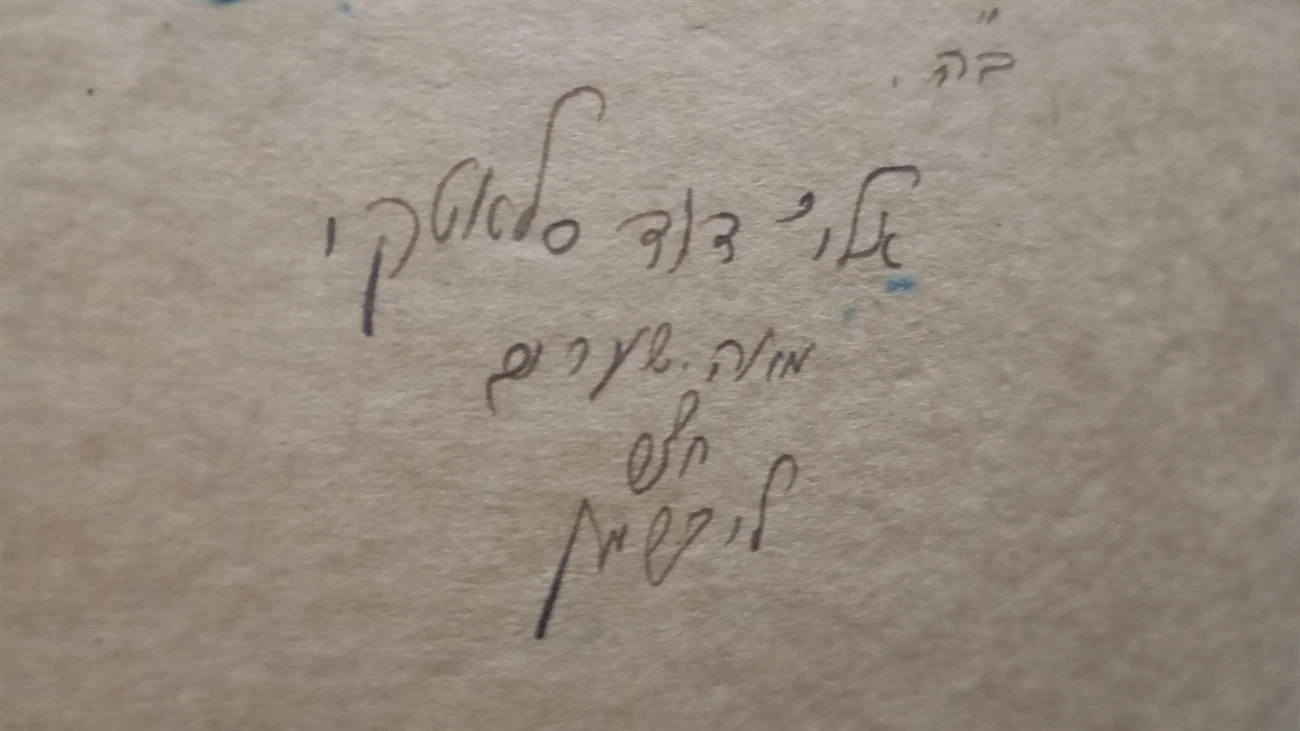 ב"ה.
אלי' דוד סלאטקי
מאה שערים
חצר
ליקשמן